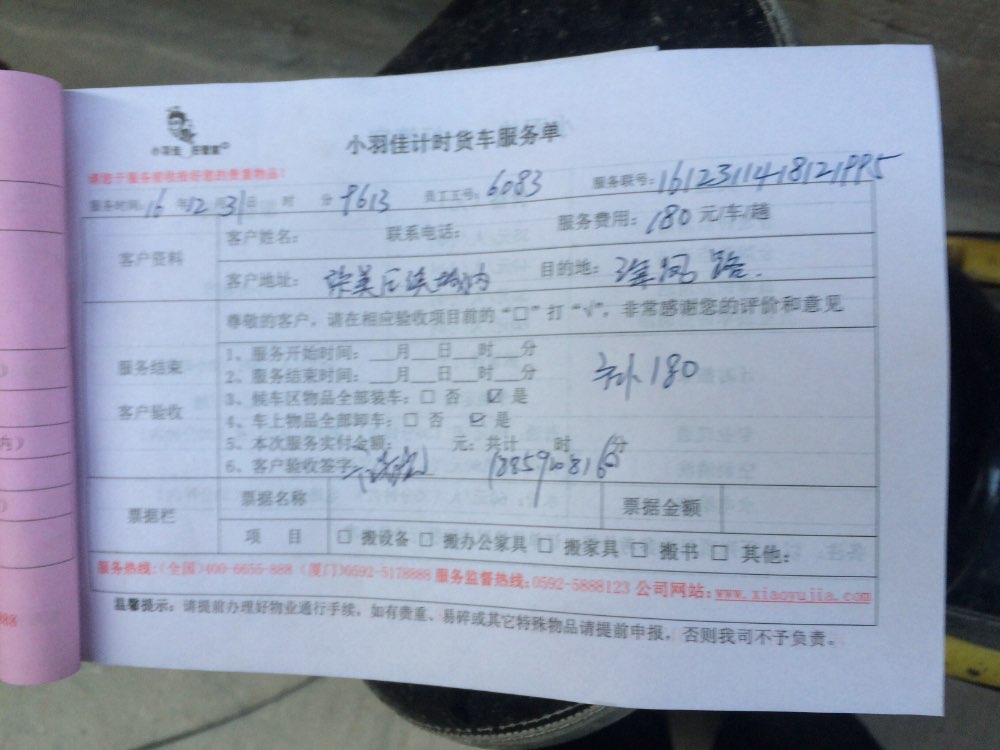 小羽佳计时货车服务单
小羽佳
请您于服务前收拾好您的贵重物品！
服务时间：16年12月31日 时 分 9613 员工工号：6083 服务联号：1612311418121995
客户资料
客户姓名： 联系电话： 服务费用：180元/车/趟
客户地址： 目的地：
尊敬的客户，请在相应验收项目前的“□”打“√”，非常感谢您的评价和意见
服务结束
客户验收
1、服务开始时间：___月___日___时___分
2、服务结束时间：___月___日___时___分
补180
3、候车区物品全部装车：□ 否 ☑ 是
4、车上物品全部卸车：□ 否 ☑ 是
5、本次服务实付金额： 元；共计 时 分
6、客户验收签字：
票据栏
票据名称 票据金额
项 目 □ 搬设备 □ 搬办公家具 □ 搬家具 □ 搬书 □ 其他：
服务热线：（全国）400-6655-888（厦门）0592-5178888 服务监督热线：0592-5888123 公司网站：www.xiaoyujia.com
温馨提示：请提前办理好物业通行手续，如有贵重、易碎或其它特殊物品请提前申报，否则我司不予负责。